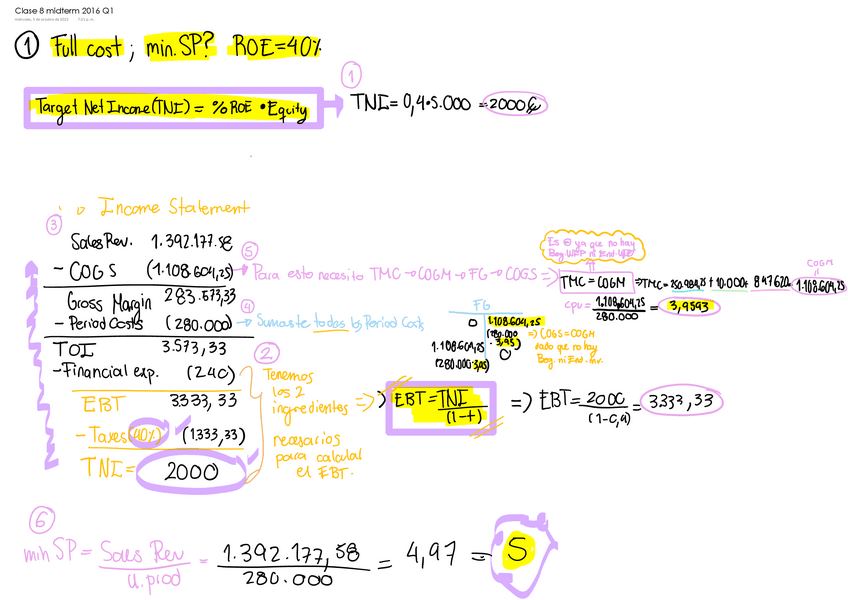 Clase 8 midterm 2016 Q1
① Full cost ; min. SP? ROE=40%
①
Target Net Income (TNI) = % ROE • Equity
TNI = 0,4•5.000 = 2000€
Income Statement
③
Sales Rev. 1.392.177,58
- COGS (1.108.604,25)
Gross Margin 283.573,33
- Period Costs (280.000)
TOI 3.573,33
- Financial exp. (240)
EBT 3.333,33
- Taxes (40%) (1.333,33)
TNI = 2000
⑤
Para esto necesito TMC → COGM → FG → COGS =>
Es ⊖ ya que no hay
Beg. WIP ni End. WIP
TMC = COGM
=> TMC =
+ 10.000 + 847.620 =
COGM
1.108.604,25
cpu = 1.108.604,25
280.000
= 3,9593
④
Sumaste todos los Period Costs
FG
0 1.108.604,25
(280.000
• 3,95)
1.108.604,25
(280.000•3,95)
0
=> COGS = COGM
dado que no hay
Beg. ni End. inv.
②
Tenemos
los 2
ingredientes =>
necesarios
para calcular
el EBT.
EBT = TNI
(1-t)
=> EBT = 2000
(1-0,4)
= 3333,33
⑥
min SP = Sales Rev
u.prod
= 1.392.177,58
280.000
= 4,97 = 5